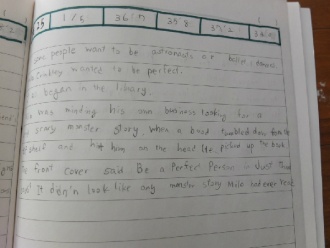 35 1/5 36.5
people want to be astronauts or ballet dancers
wanted to be perfect.
began in the library.
was minding his own business looking for a
scary monster story, when a book tumbled down from the
shelf and hit him on the head. He picked up the book
front cover said Be a Perfect Person in Just Three
It didn't look like any monster story Milo had ever read